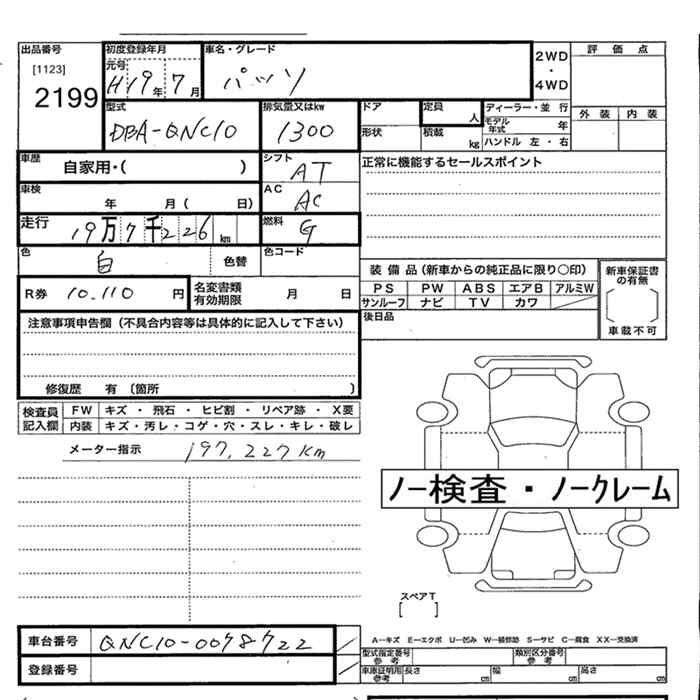 出品番号 初度登録年月 車名・グレード 2WD・4WD 評価点
[1123] 元号
2199 H19年 7月 パッソ
外装 内装
型式 排気量又はkw ドア 定員 人 ディーラー・並行
DBA-QNC10 1300 形状 積載 kg モデル年式 年
ハンドル 左・右
車歴 自家用・( ) シフト AT 正常に機能するセールスポイント
車検 年 月( 日) AC AC
走行 19万7千226km 燃料 G
色 白 色替 色コード
装備品(新車からの純正品に限り○印) 新車保証書の有無
R券 10.110円 名変書類有効期限 月 日 PS PW ABS エアB アルミW
サンルーフ ナビ TV カワ 車載不可
注意事項申告欄(不具合内容等は具体的に記入して下さい) 後日品
修復歴 有 〔箇所 〕
検査員記入欄 FW キズ・飛石・ヒビ割・リペア跡・X要
内装 キズ・汚レ・コゲ・穴・スレ・キレ・破レ
メーター指示 197,227km
ノー検査・ノークレーム
スペアT
[ ]
車台番号 QNC10-0078722
A―キズ E―エクボ U―凹み W―補修跡 S―サビ C―腐食 XX―交換済
型式指定番号 参考 類別区分番号 参考
登録番号 車庫証明用 参考 長さ cm 幅 cm 高さ cm